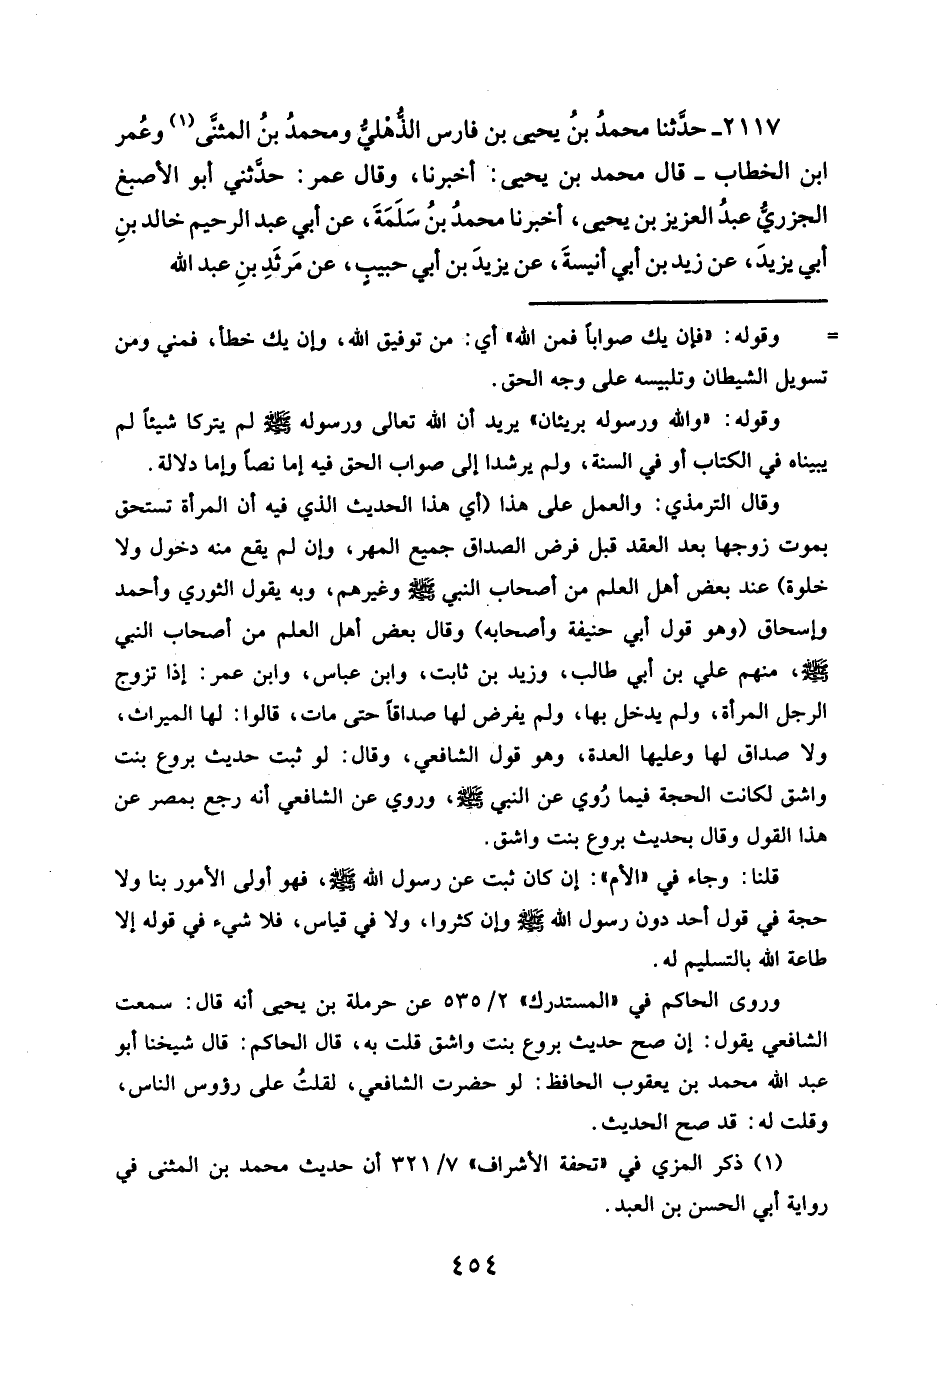 ٢١١٧ـ حدَّثنا محمدُ بنُ يحيى بن فارس الذُّهْليُّ ومحمدُ بنُ المثنَّى(١) وعُمر
ابن الخطاب ـ قال محمد بن يحيى: أخبرنا، وقال عمر: حدَّثني أبو الأصبغ
الجزريُّ عبدُ العزيز بن يحيى، أخبرنا محمدُ بنُ سَلَمَةَ، عن أبي عبد الرحيم خالد بنِ
أبي يزيدَ، عن زيد بن أبي أنيسةَ، عن يزيدَ بن أبي حبيبٍ، عن مَرثَدِ بنِ عبد الله
= وقوله: «فإن يك صواباً فمن الله» أي: من توفيق الله، وإن يك خطأ، فمني ومن
تسويل الشيطان وتلبيسه على وجه الحق.
وقوله: «والله ورسوله بريئان» يريد أن الله تعالى ورسوله ﷺ لم يتركا شيئاً لم
يبيناه في الكتاب أو في السنة، ولم يرشدا إلى صواب الحق فيه إما نصاً وإما دلالة.
وقال الترمذي: والعمل على هذا (أي هذا الحديث الذي فيه أن المرأة تستحق
بموت زوجها بعد العقد قبل فرض الصداق جميع المهر، وإن لم يقع منه دخول ولا
خلوة) عند بعض أهل العلم من أصحاب النبي ﷺ وغيرهم، وبه يقول الثوري وأحمد
وإسحاق (وهو قول أبي حنيفة وأصحابه) وقال بعض أهل العلم من أصحاب النبي
ﷺ، منهم علي بن أبي طالب، وزيد بن ثابت، وابن عباس، وابن عمر: إذا تزوج
الرجل المرأة، ولم يدخل بها، ولم يفرض لها صداقاً حتى مات، قالوا: لها الميراث،
ولا صداق لها وعليها العدة، وهو قول الشافعي، وقال: لو ثبت حديث بروع بنت
واشق لكانت الحجة فيما رُوي عن النبي ﷺ، وروي عن الشافعي أنه رجع بمصر عن
هذا القول وقال بحديث بروع بنت واشق.
قلنا: وجاء في «الأم»: إن كان ثبت عن رسول الله ﷺ، فهو أولى الأمور بنا ولا
حجة في قول أحد دون رسول الله ﷺ وإن كثروا، ولا في قياس، فلا شيء في قوله إلا
طاعة الله بالتسليم له.
وروى الحاكم في «المستدرك» ٢/ ٥٣٥ عن حرملة بن يحيى أنه قال: سمعت
الشافعي يقول: إن صح حديث بروع بنت واشق قلت به، قال الحاكم: قال شيخنا أبو
عبد الله محمد بن يعقوب الحافظ: لو حضرت الشافعي، لقلتُ على رؤوس الناس،
وقلت له: قد صح الحديث.
(١) ذكر المزي في «تحفة الأشراف» ٧/ ٣٢١ أن حديث محمد بن المثنى في
رواية أبي الحسن بن العبد.
٤٥٤